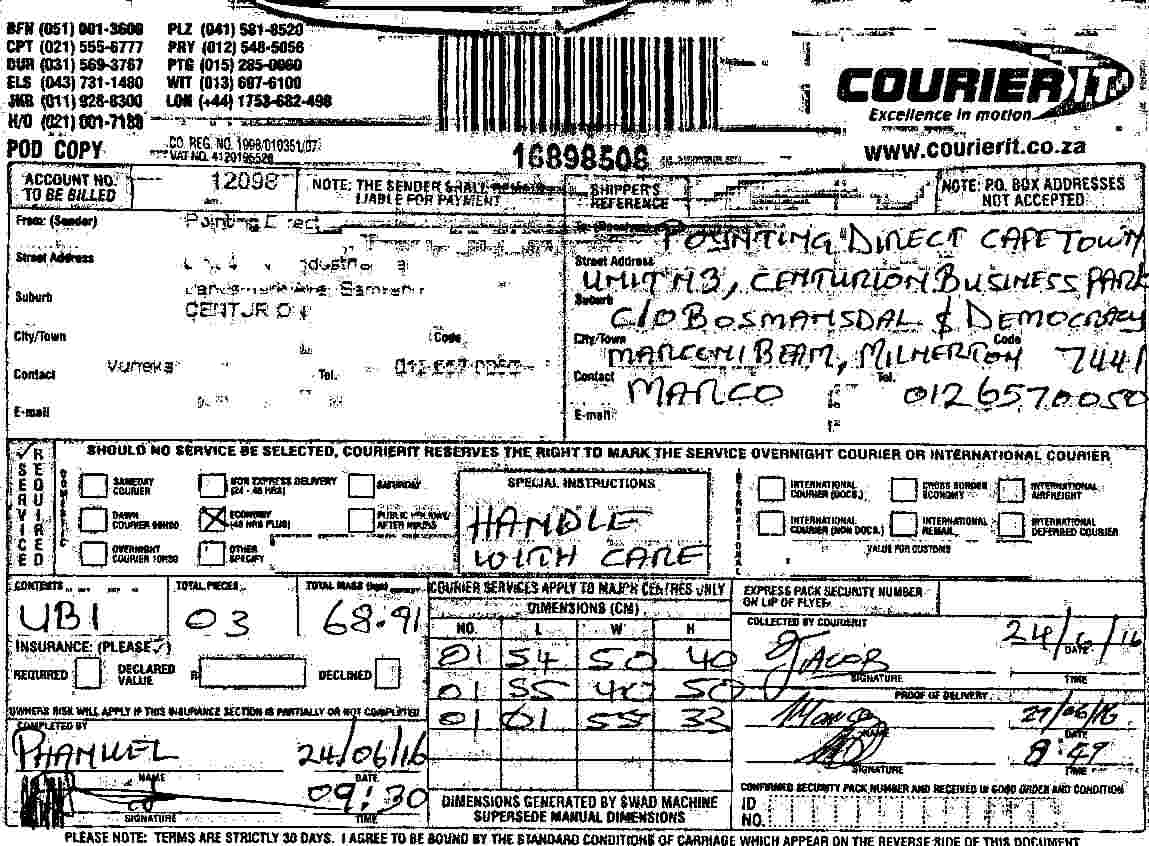 BFN (051) 001-3600 PLZ (041) 581-8520
CPT (021) 555-6777 PRY (012) 548-5056
DUR (031) 569-3767 PTG (015) 285-0060
ELS (043) 731-1480 WIT (013) 697-6100
JNB (011) 928-8300 LON (+44) 1753-682-498
H/O (021) 001-7188
COURIERIT
Excellence in motion
www.courierit.co.za
POD COPY
CO. REG. NO. 1998/010351/07
VAT NO. 4120195526
16898508
ACCOUNT NO. TO BE BILLED 12098
NOTE: THE SENDER SHALL REMAIN LIABLE FOR PAYMENT
SHIPPER'S REFERENCE
NOTE: P.O. BOX ADDRESSES NOT ACCEPTED
From: (Sender)
Street Address
Suburb
CENTURION
City/Town Code
Contact Tel.
E-mail
POYNTING DIRECT CAPE TOWN
Street Address
UNIT H3, CENTURION BUSINESS PARK
Suburb
C/O BOSMANSDAL & DEMOCRACY
City/Town Code
MARCONI BEAM, MILNERTON 7441
Contact MARCO Tel. 0126570050
E-mail
SERVICE REQUIRED
SHOULD NO SERVICE BE SELECTED, COURIERIT RESERVES THE RIGHT TO MARK THE SERVICE OVERNIGHT COURIER OR INTERNATIONAL COURIER
DOMESTIC
SAMEDAY COURIER
NON EXPRESS DELIVERY (24 - 48 HRS)
SATURDAY
DAWN COURIER 09H00
ECONOMY (48 HRS PLUS)
PUBLIC HOLIDAY/ AFTER HOURS
OVERNIGHT COURIER 10H30
OTHER SPECIFY
SPECIAL INSTRUCTIONS
HANDLE
WITH CARE
INTERNATIONAL
INTERNATIONAL COURIER (DOCS.)
CROSS BORDER ECONOMY
INTERNATIONAL AIRFREIGHT
INTERNATIONAL COURIER (NON DOCS.)
INTERNATIONAL REMAIL
INTERNATIONAL DEFERRED COURIER
VALUE FOR CUSTOMS
CONTENTS TOTAL PIECES TOTAL MASS (kgs)
UBI 03 68.91
INSURANCE: (PLEASE ✓)
REQUIRED DECLARED VALUE R DECLINED
OWNERS RISK WILL APPLY IF THIS INSURANCE SECTION IS PARTIALLY OR NOT COMPLETED
COMPLETED BY
PHANUEL 24/06/16
NAME DATE
09:30
SIGNATURE TIME
COURIER SERVICES APPLY TO MAJOR CENTRES ONLY
DIMENSIONS (CM)
NO. L W H
01 54 50 40
01 55 40 50
01 61 55 33
DIMENSIONS GENERATED BY SWAD MACHINE
SUPERSEDE MANUAL DIMENSIONS
EXPRESS PACK SECURITY NUMBER
ON LIP OF FLYER
COLLECTED BY COURIERIT
JACOB 24/6/16
DATE
SIGNATURE TIME
PROOF OF DELIVERY
Marco 27/06/16
NAME DATE
8:47
SIGNATURE TIME
CONFIRMED SECURITY PACK NUMBER AND RECEIVED IN GOOD ORDER AND CONDITION
ID NO.
PLEASE NOTE: TERMS ARE STRICTLY 30 DAYS. I AGREE TO BE BOUND BY THE STANDARD CONDITIONS OF CARRIAGE WHICH APPEAR ON THE REVERSE SIDE OF THIS DOCUMENT